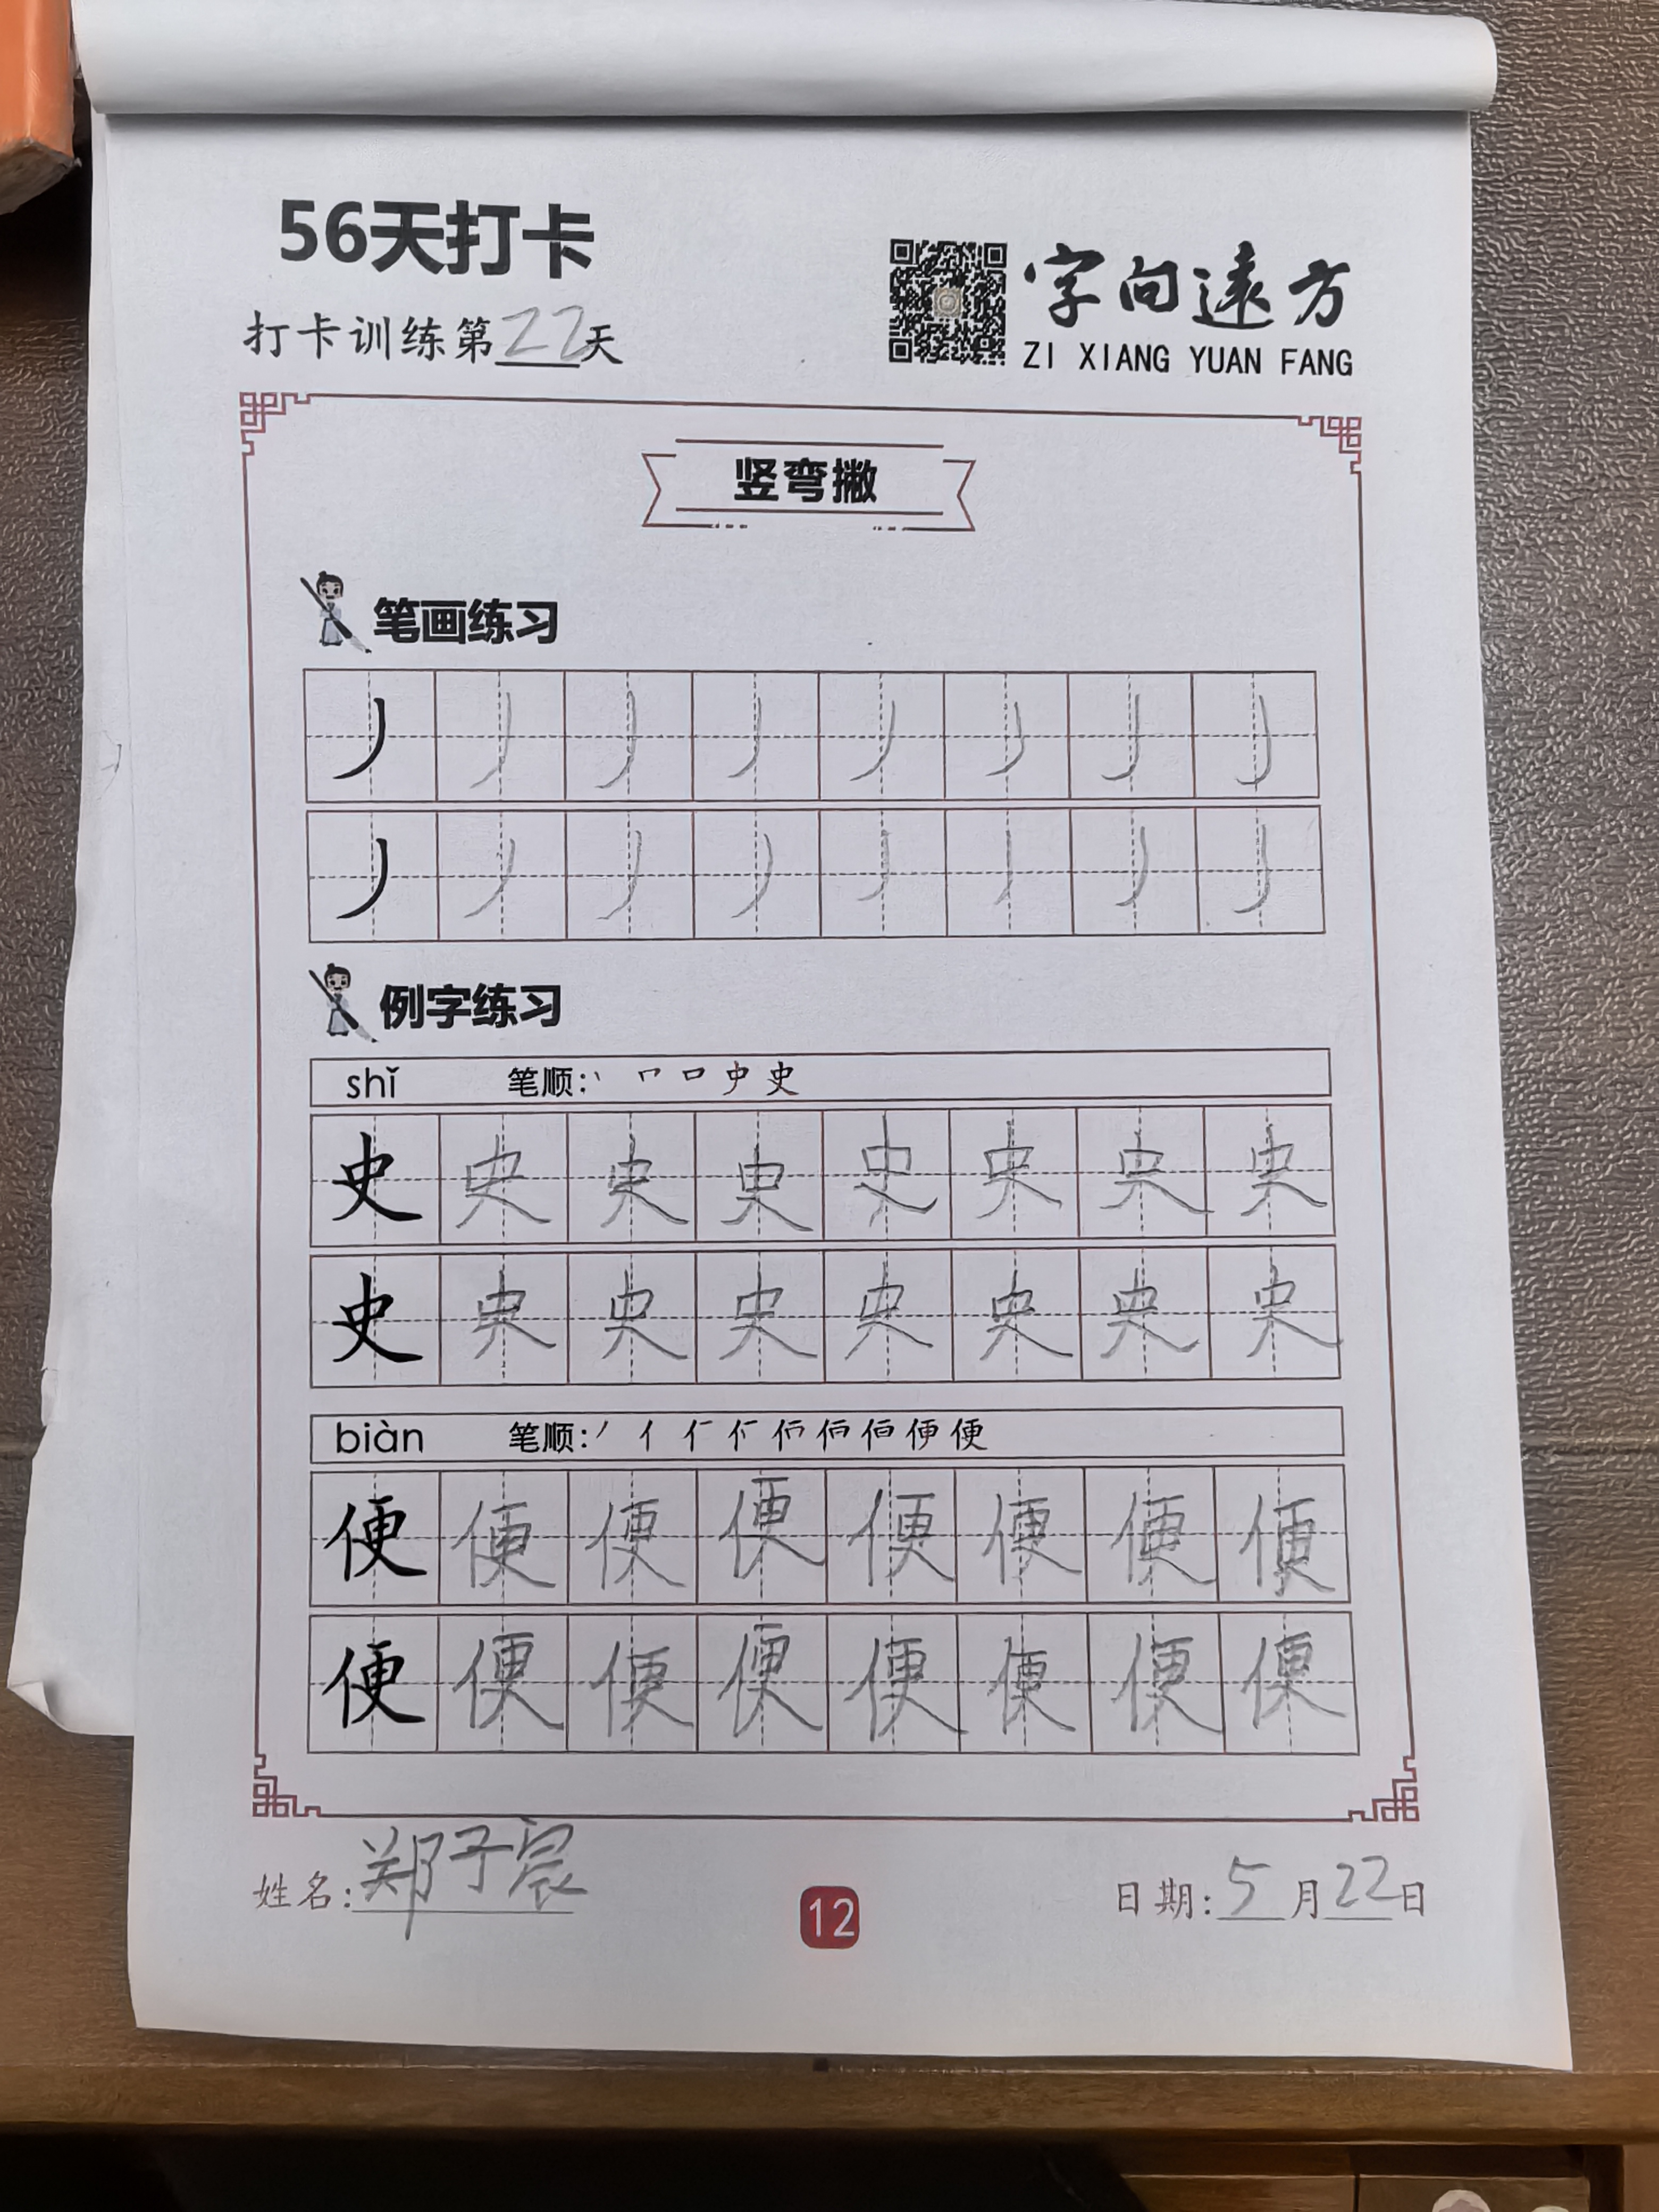 56天打卡
打卡训练第22天
字向远方
ZI XIANG YUAN FANG
竖弯撇
笔画练习
丿 丿 丿 丿 丿 丿 丿 丿
丿 丿 丿 丿 丿 丿 丿 丿
例字练习
shǐ 笔顺: 丨 𠃍 口 史 史
史 史 史 史 史 史 史 史
史 史 史 史 史 史 史 史
biàn 笔顺: 丿 亻 便
便 便 便 便 便 便 便 便
便 便 便 便 便 便 便 便
姓名:郑予宸
12
日期:5月22日